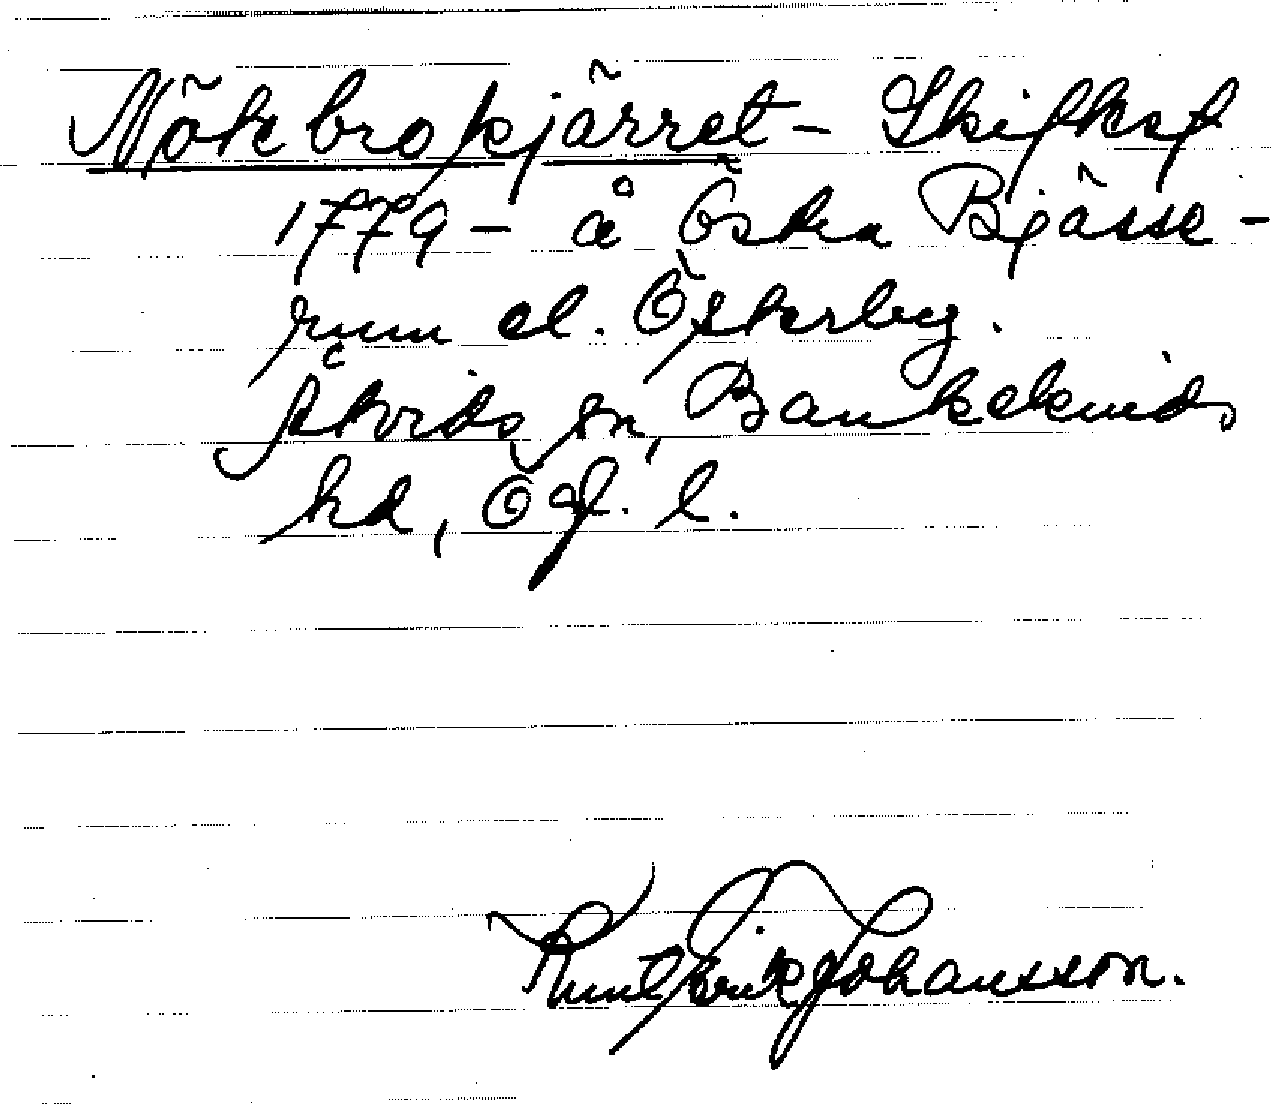 Nötebrokjärret - Skifksf
1779 - å Östra Bjärse-
rum el. Österby.
Åtvids sn, Bankekinds
hd, Ögl. l.
Knut Erik Johansson.